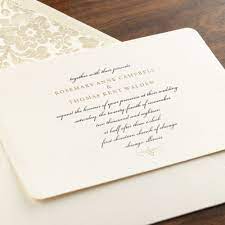 together with their parents
ROSEMARY ANNE CAMPBELL
&
THOMAS KENT WALDEN
request the honour of your presence at their wedding
saturday, the twenty fourth of november
two thousand and eighteen
at half after three o'clock
first christian church of chicago
chicago, illinois